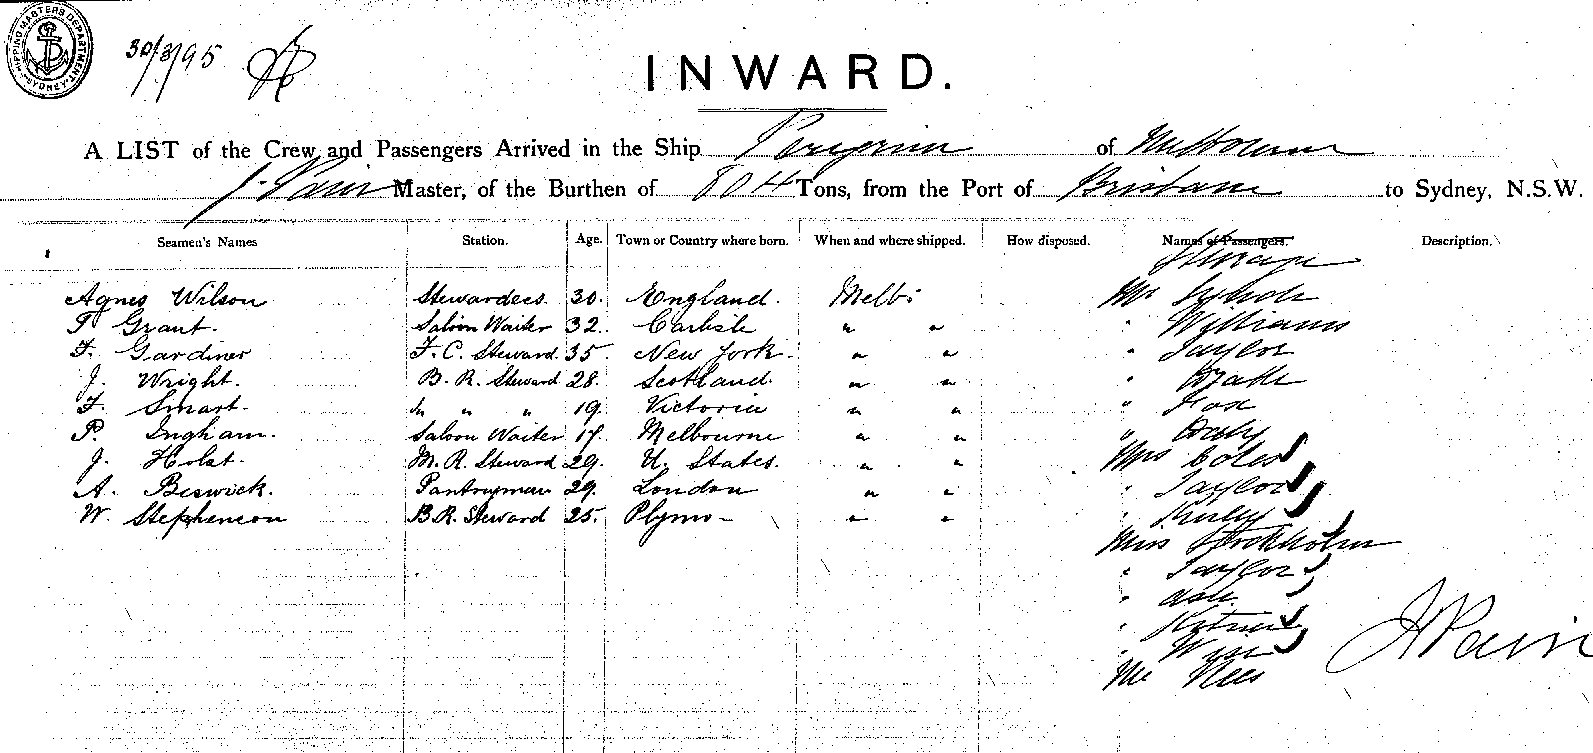 SHIPPING MASTERS DEPARTMENT SYDNEY
30/3/95
INWARD.
A LIST of the Crew and Passengers Arrived in the Ship of Melbourne
J. Pain Master, of the Burthen of 804 Tons, from the Port of Brisbane to Sydney, N.S.W.
Seamen's Names Station. Age. Town or Country where born. When and where shipped. How disposed. Names of Passengers. Description.
Steerage
Agnes Wilson Stewardess. 30. England. Melb: Mr
P Grant. Saloon Waiter 32. Carlisle " " " Williams
F. Gardiner F. C. Steward. 35. New York. " " " Taylor
J. Wright. B. R. Steward 28. Scotland. " " "
F. Smart. Do " " 19. Victoria " " " Fox
P. Ingham. Saloon Waiter 17. Melbourne " " "
J. Holst. M. R. Steward 29. U. States. " " Mrs Coles
A. Beswick. Pantryman 29. London " " " Taylor
W. Stephenson B. R. Steward 25. Plymo- " " "
Miss Stockholm
" Taylor
" Ash.
"
"
Mr Rees
J Pain